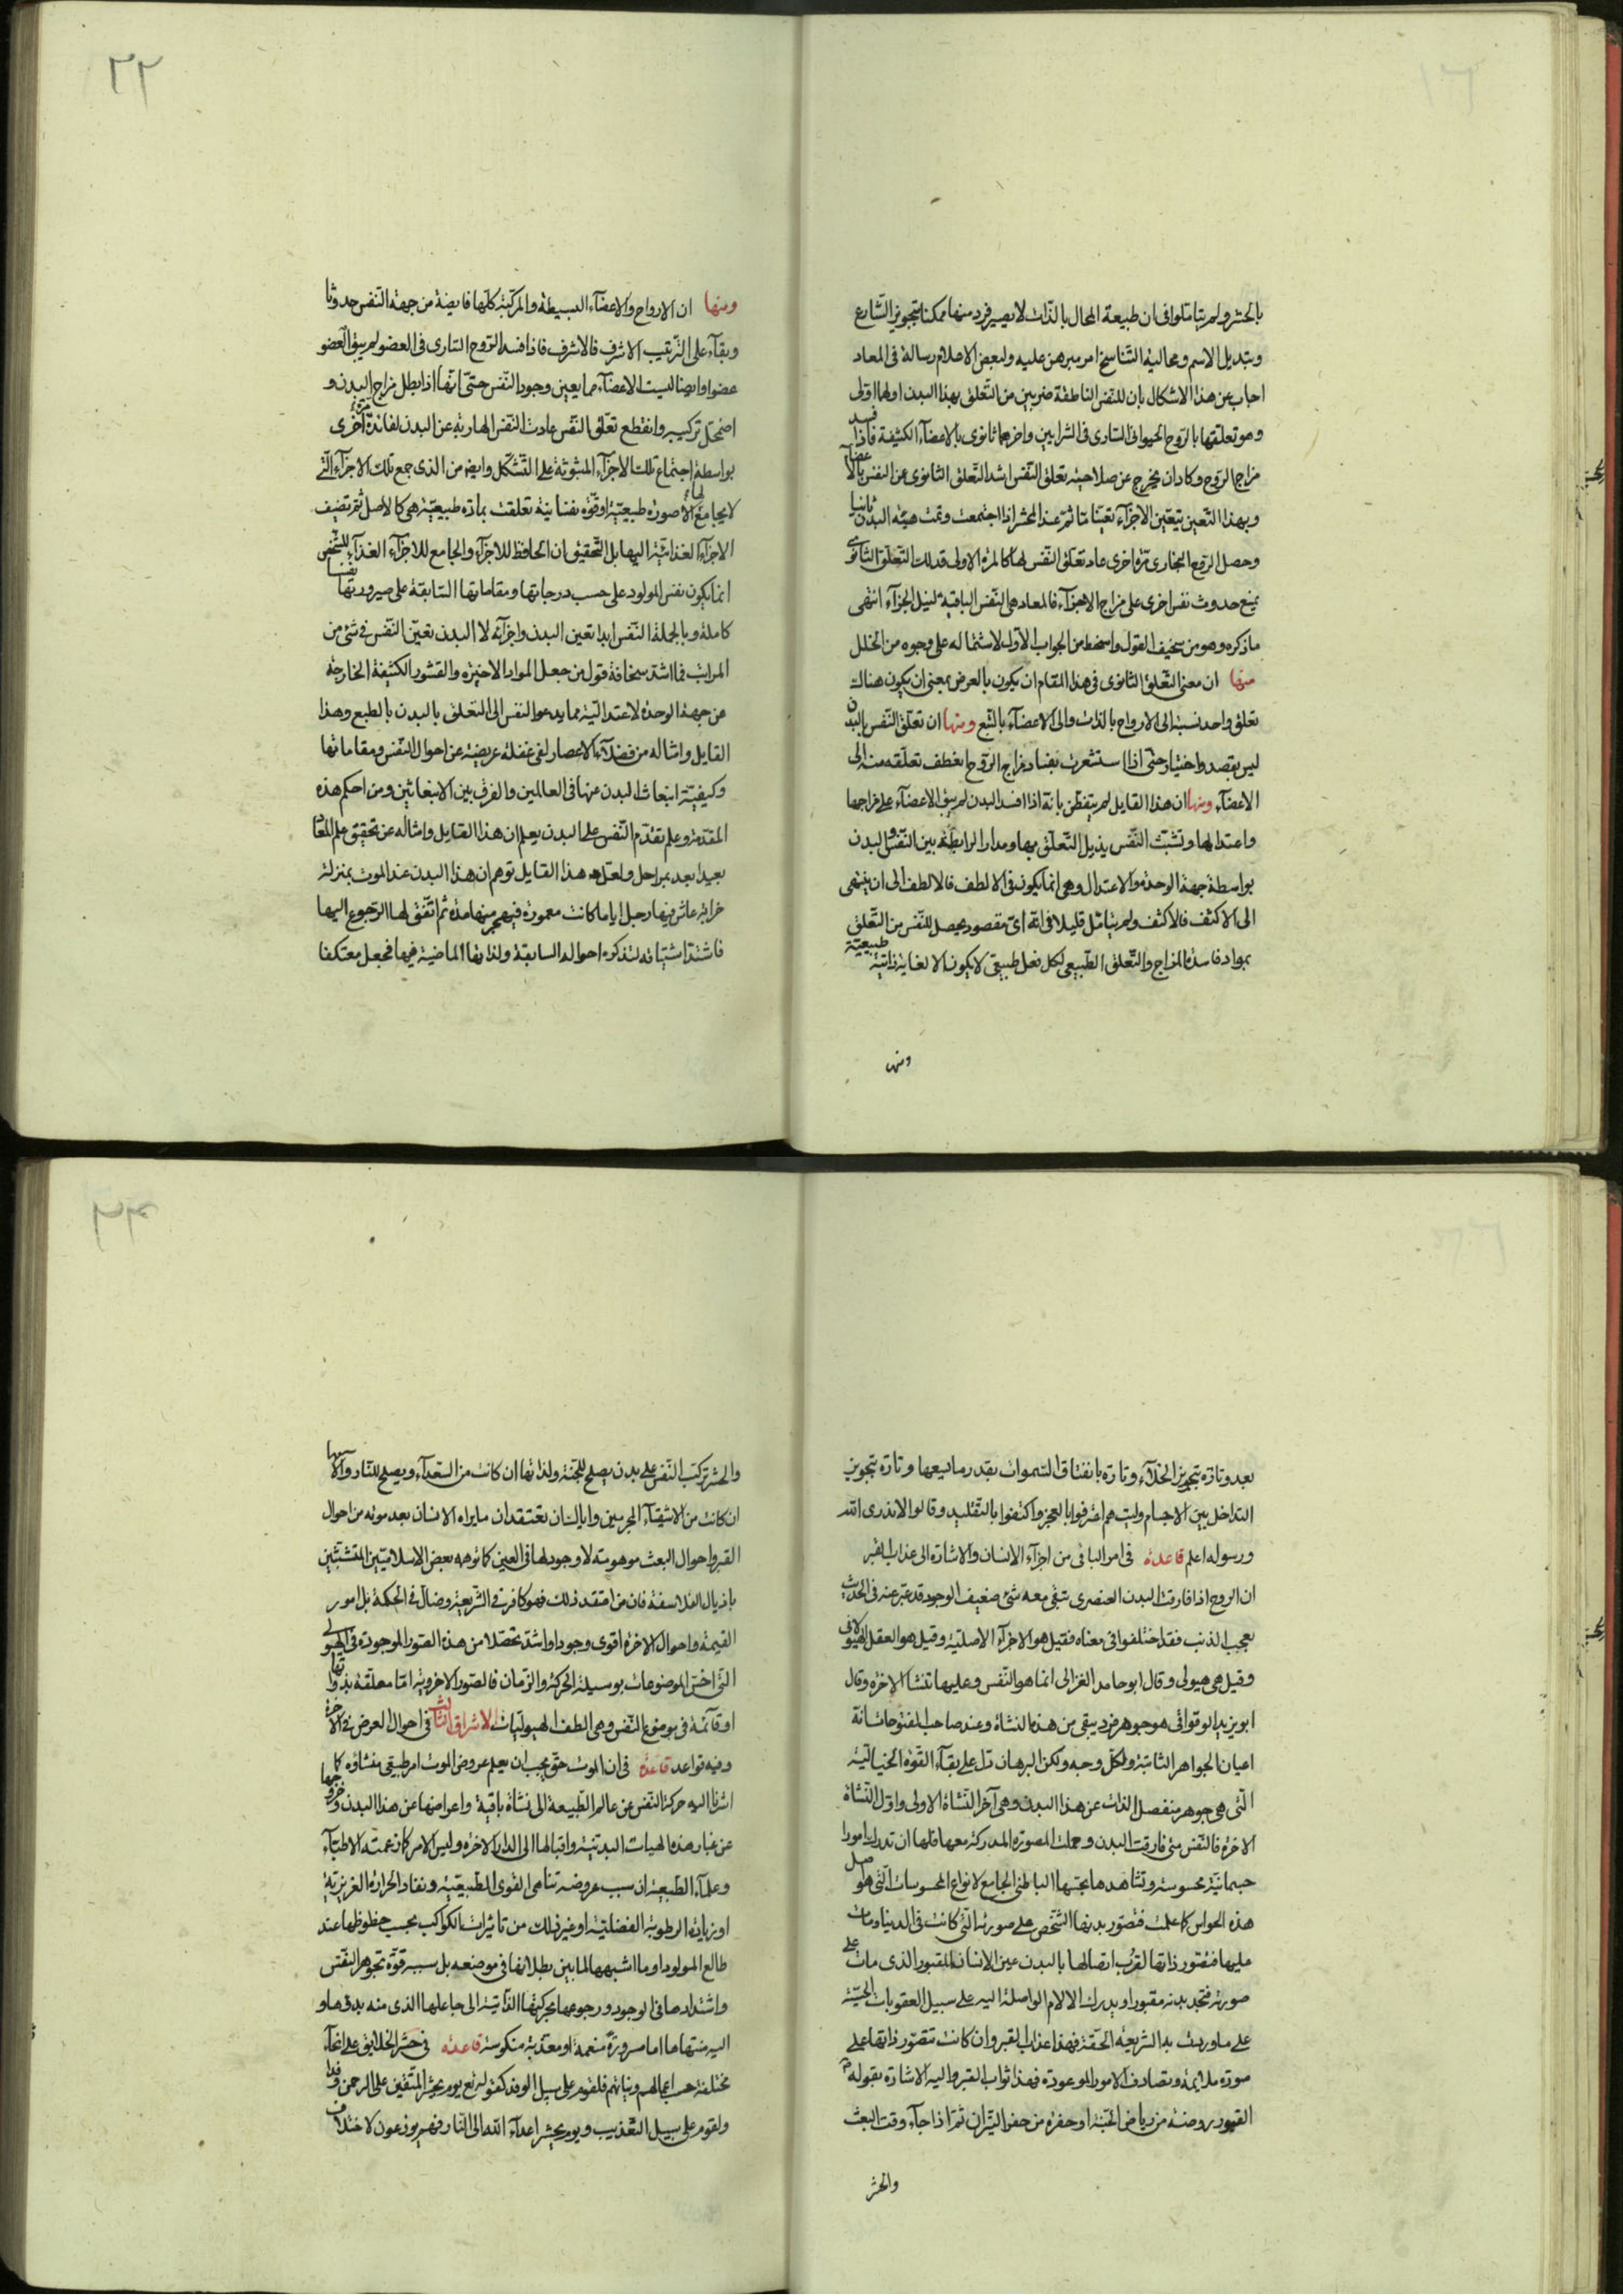 بالحشر ولم يتاملوا فى ان طبيعة المحال بالذات لا يصير فرد منها ممكنا بتجويز الشارع
وبتديل الاسم ومحالية التناسخ امر مبرهن عليه ولبعض الاعلام رسالة فى المعاد
اجاب عن هذا الاشكال بان للنفس الناطقة ضربين من التعلق بهذا البدن اولهما اولى
وهو تعلقها بالروح الحيوانى السارى فى الشرايين واخرهما ثانوى بالاعضآء الكثيفة فاذا فسد
مزاج الروح وكاد ان يخرج عن صلاحية تعلق النفس اشتد التعلق الثانوى عن النفس بالاعضآء
وبهذا التعين يتعين الاجزآء تعينا ما ثم عند المحشر اذا اجتمعت وتمت هيئه البدن ثانيا
وحصل الروح البخارى مرة اخرى عاد تعلق النفس لها كالمرة الاولى فذلك التعلق الثانوى
يمنع حدوث نفس اخرى على مزاج الاجزآء فالمعاد هى النفس الباقية لنيل الجزآء انتهى
ما ذكره وهو من سخيف القول واسخط من الجواب الاول لاشتماله على وجوه من الخلل
منها ان معنى التعلق الثانوى فى هذا المقام ان يكون بالعرض بمعنى ان يكون هناك
تعلق واحد نسبة الى الارواح بالذات والى الاعضآء بالتبع ومنها ان تعلق النفس بالبدن
ليس بقصد واختيار حتى اذا استشعرت بفساد مزاج الروح انعطف تعلقه منه الى
الاعضآء ومنها ان هذا القايل لم يتفطن بانه اذا افسد البدن لم يبق الاعضآء على مزاجها
واعتدالها وتشبث النفس بذيل التعلق بها ومدار الرابطة بين النفس والبدن
بواسطة جهة الوحدة والاعتدال وهى انما يكون فى الالطف فالالطف الى ان ينتهى
الى الاكثف فالاكثف ولم يتامل قليلا فى انه اى مقصود يحصل للنفس من التعلق
بمواد فاسدة المزاج والتعلق الطبيعى لكل فعل طبيعى لا يكون الا لغاية ذاتية طبيعية
ومنها
٢٢
ومنها ان الارواح والاعضآء البسيطة والمركبة كلها فايضة من جهة النفس حدوثا
وبقآء على الترتيب الاشرف فالاشرف فاذا فسد الروح السارى فى العضو لم يبق العضو
عضوا وايضا ليست الاعضآء مما يعين وجود النفس حتى انها اذا بطل مزاج البدن و
اضمحل تركيبه وانقطع تعلق النفس عادت النفس الهاربة عن البدن لفائدة اخرى
بواسطة اجتماع تلك الاجزآء المبثوثة على التشكل وايضا من الذى جمع تلك الاجزآء التى
لا يجامع لها الا صورة طبيعية او قوة نفسانية تعلقت بمادة طبيعية هى كالاصل ثم تضيف
الاجزآء الغذائية اليها بل التحقيق ان الحافظ للاجزآء والجامع للاجزآء الغذآء للشخص
انما يكون نفس المولود على حسب درجاتها ومقاماتها السابقة على صيرورتها نفسا
كاملة وبالجملة النفس ابدا تعين البدن واجزآئه لا البدن تعين النفس فى شئ من
المراتب فما اشد سخافة قول من جعل المواد الاخيره والقشور الكثيفة الخارجة
عن جهة الوحدة لاعتدالية مما يدعو النفس الى التعلق بالبدن بالطبع وهذا
القايل وامثاله من فضلآء الاعصار لفى غفلة عريضة عن احوال النفس ومقاماتها
وكيفية انبعاث البدن عنها فى العالمين والفرق بين الانبعاثين ومن احكم هذه
المقدمة وعلم تقدم النفس على البدن يعلم ان هذا القايل وامثاله عن تحقيق علم المعاد
بعيدا بعد بمراحل ولعل هذا القايل توهم ان هذا البدن عند الموت بمنزلة
خرابة عاش فيها رجل اياما كانت معمورة فيهجر منها مدة ثم اتفق لها الرجوع اليها
فاشتد اشتياقه لتذكره احواله السابقة ولذاتها الماضية فيها فجعل معتكفا
بعد وتارة بتجويز الخلآء وتارة بانفتاق السموات بقدر ما يسعها وتارة بتجويز
التداخل بين الاجسام وليت هم اعترفوا بالعجز واكتفوا بالتقليد وقالوا لا ندرى الله
ورسوله اعلم قاعدة فى امر الباقى من اجزآء الانسان والاشارة الى عذاب القبر
ان الروح اذا فارقت البدن العنصرى تبقى معه شئ ضعيف الوجود قد عبر عنه فى الحديث
بعجب الذنب فقد اختلفوا فى معناه فقيل هو الاجزآء الاصلية وقيل هو العقل الهيولانى
وقيل هى هيولى وقال ابو حامد الغزالى انما هو النفس وعليها تنشا الاخرة وقال
ابو يزيد الوقواقى هو جوهر فرد يبقى من هذه النشاة وعند صاحب الفتوحات انه
اعيان الجواهر الثابتة ولكل وجه ولكن البرهان دل على بقآء القوة الخيالية
التى هى جوهر منفصل الذات عن هذا البدن وهى آخر النشاة الاولى واول النشاة
الاخرة فالنفس متى فارقت البدن وحملت المصورة المدركة معها فلها ان تدرك امورا
جسمانية محسوسة وتشاهدها بحسها الباطنى الجامع لانواع المحسوسات التى هو اصل
هذه الحواس كما علمت فتصور بدنها الشخص على صورته التى كانت فى الدنيا ومات
عليها فتتصور ذاتها لقرب اتصالها بالبدن عين الانسان المقبور الذى مات على
صورته فتجد بدنه مقبورا ويدرك الالام الواصلة اليه على سبيل العقوبات الحسية
على ما وردت به الشريعة الحقة فهذا عذاب القبر وان كانت تتصور ذاتها على
صورة ملايمة وتصادف الامور الموعودة فهذا ثواب القبر واليه الاشارة بقوله
القبور روضة من رياض الجنة او حفرة من حفر النيران ثم اذا جآء وقت البعث
والحشر
٢٣
والحشر تركب النفس على بدن يصلح للجنة ولذاتها ان كانت من السعدآء ويصلح للنار وآلامها
ان كانت من الاشقيآء المجرمين واياك ان تعتقد ان ما يراه الانسان بعد موته من احوال
القبر واحوال البعث موهومة لا وجود لها فى العين كما توهمه بعض الاسلاميين المتشبثين
باذيال الفلاسفة فان من اعتقد ذلك فهو كافر فى الشريعة وضال فى الحكمة بل امور
القيمة واحوال الاخرة اقوى وجودا واشد تحصلا من هذه الصور الموجودة فى الهيولى
التى اخس الموضوعات بوسيلة الحركة والزمان فالصور الاخروية اما معلقة بذواتها
او قائمة فى موضوع النفس وهى الطف الهيوليات الاشراق الثالث فى احوال العرض فى الآخرة
وفيه قواعد قاعدة فى ان الموت حق يجب ان يعلم عروض الموت امر طبيعى منشاوه كما
اشرنا اليه حركة النفس عن عالم الطبيعة الى نشاة باقية واعراضها عن هذا البدن وخروجها
عن غبار هذه الهيات البدنية واقبالها الى الدار الاخرة وليس الامر كما زعمته الاطبآء
وعلمآء الطبيعة ان سبب عروضه تناهى القوى الطبيعية ونفاد الحرارة الغريزية
او زيادة الرطوبة الفضلية او غير ذلك من تاثيرات الكواكب بحسب حظوظها عند
طالع المولود او ما اشبهها لما بين بطلانها فى موضعه بل سببه قوة تجوهر النفس
واشتدادها فى الوجود ورجوعها بحركتها الذاتية الى جاعلها الذى منه بدؤها و
اليه منتهاها اما مسرورة منعمة او معذبة منكوسة قاعدة فى حشر الخلايق على انحآء
مختلفة حسب اعمالهم ونياتهم فلقوم على سبيل الوفد كقوله تع يوم يحشر المتقين على الرحمن وفدا
ولقوم على سبيل التعذيب ويوم يحشر اعدآء الله الى النار فهم يوزعون لاختلاف